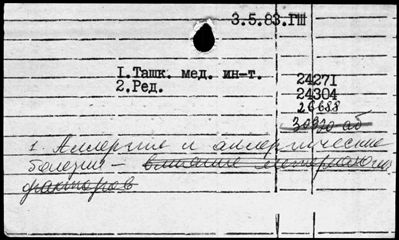 3.5.83.ГШ
I.Ташк. мед. ин-т.
2.Ред.
24271
24304
26688
30920 аб
1. Аллергия и аллергические
болезни – влияние метеорологич.
факторов